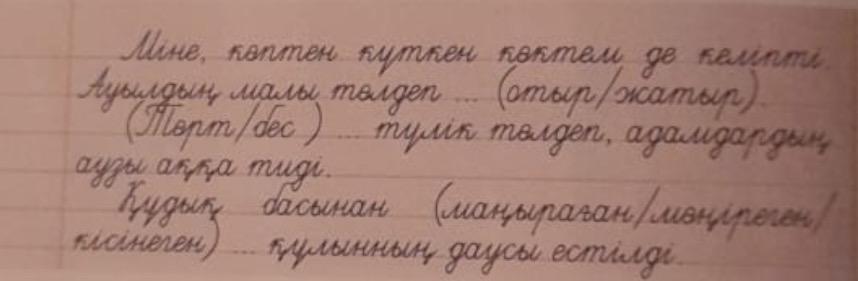 Міне, көптен күткен көктем де келіпті.
Ауылдың малы төлдеп ... (отыр/жатыр).
(Төрт/бес) ... түлік төлдеп, адамдардың
аузы аққа тиді.
Құдық басынан (маңыраған/мөңіреген/
кісінеген) ... құлынның даусы естілді.